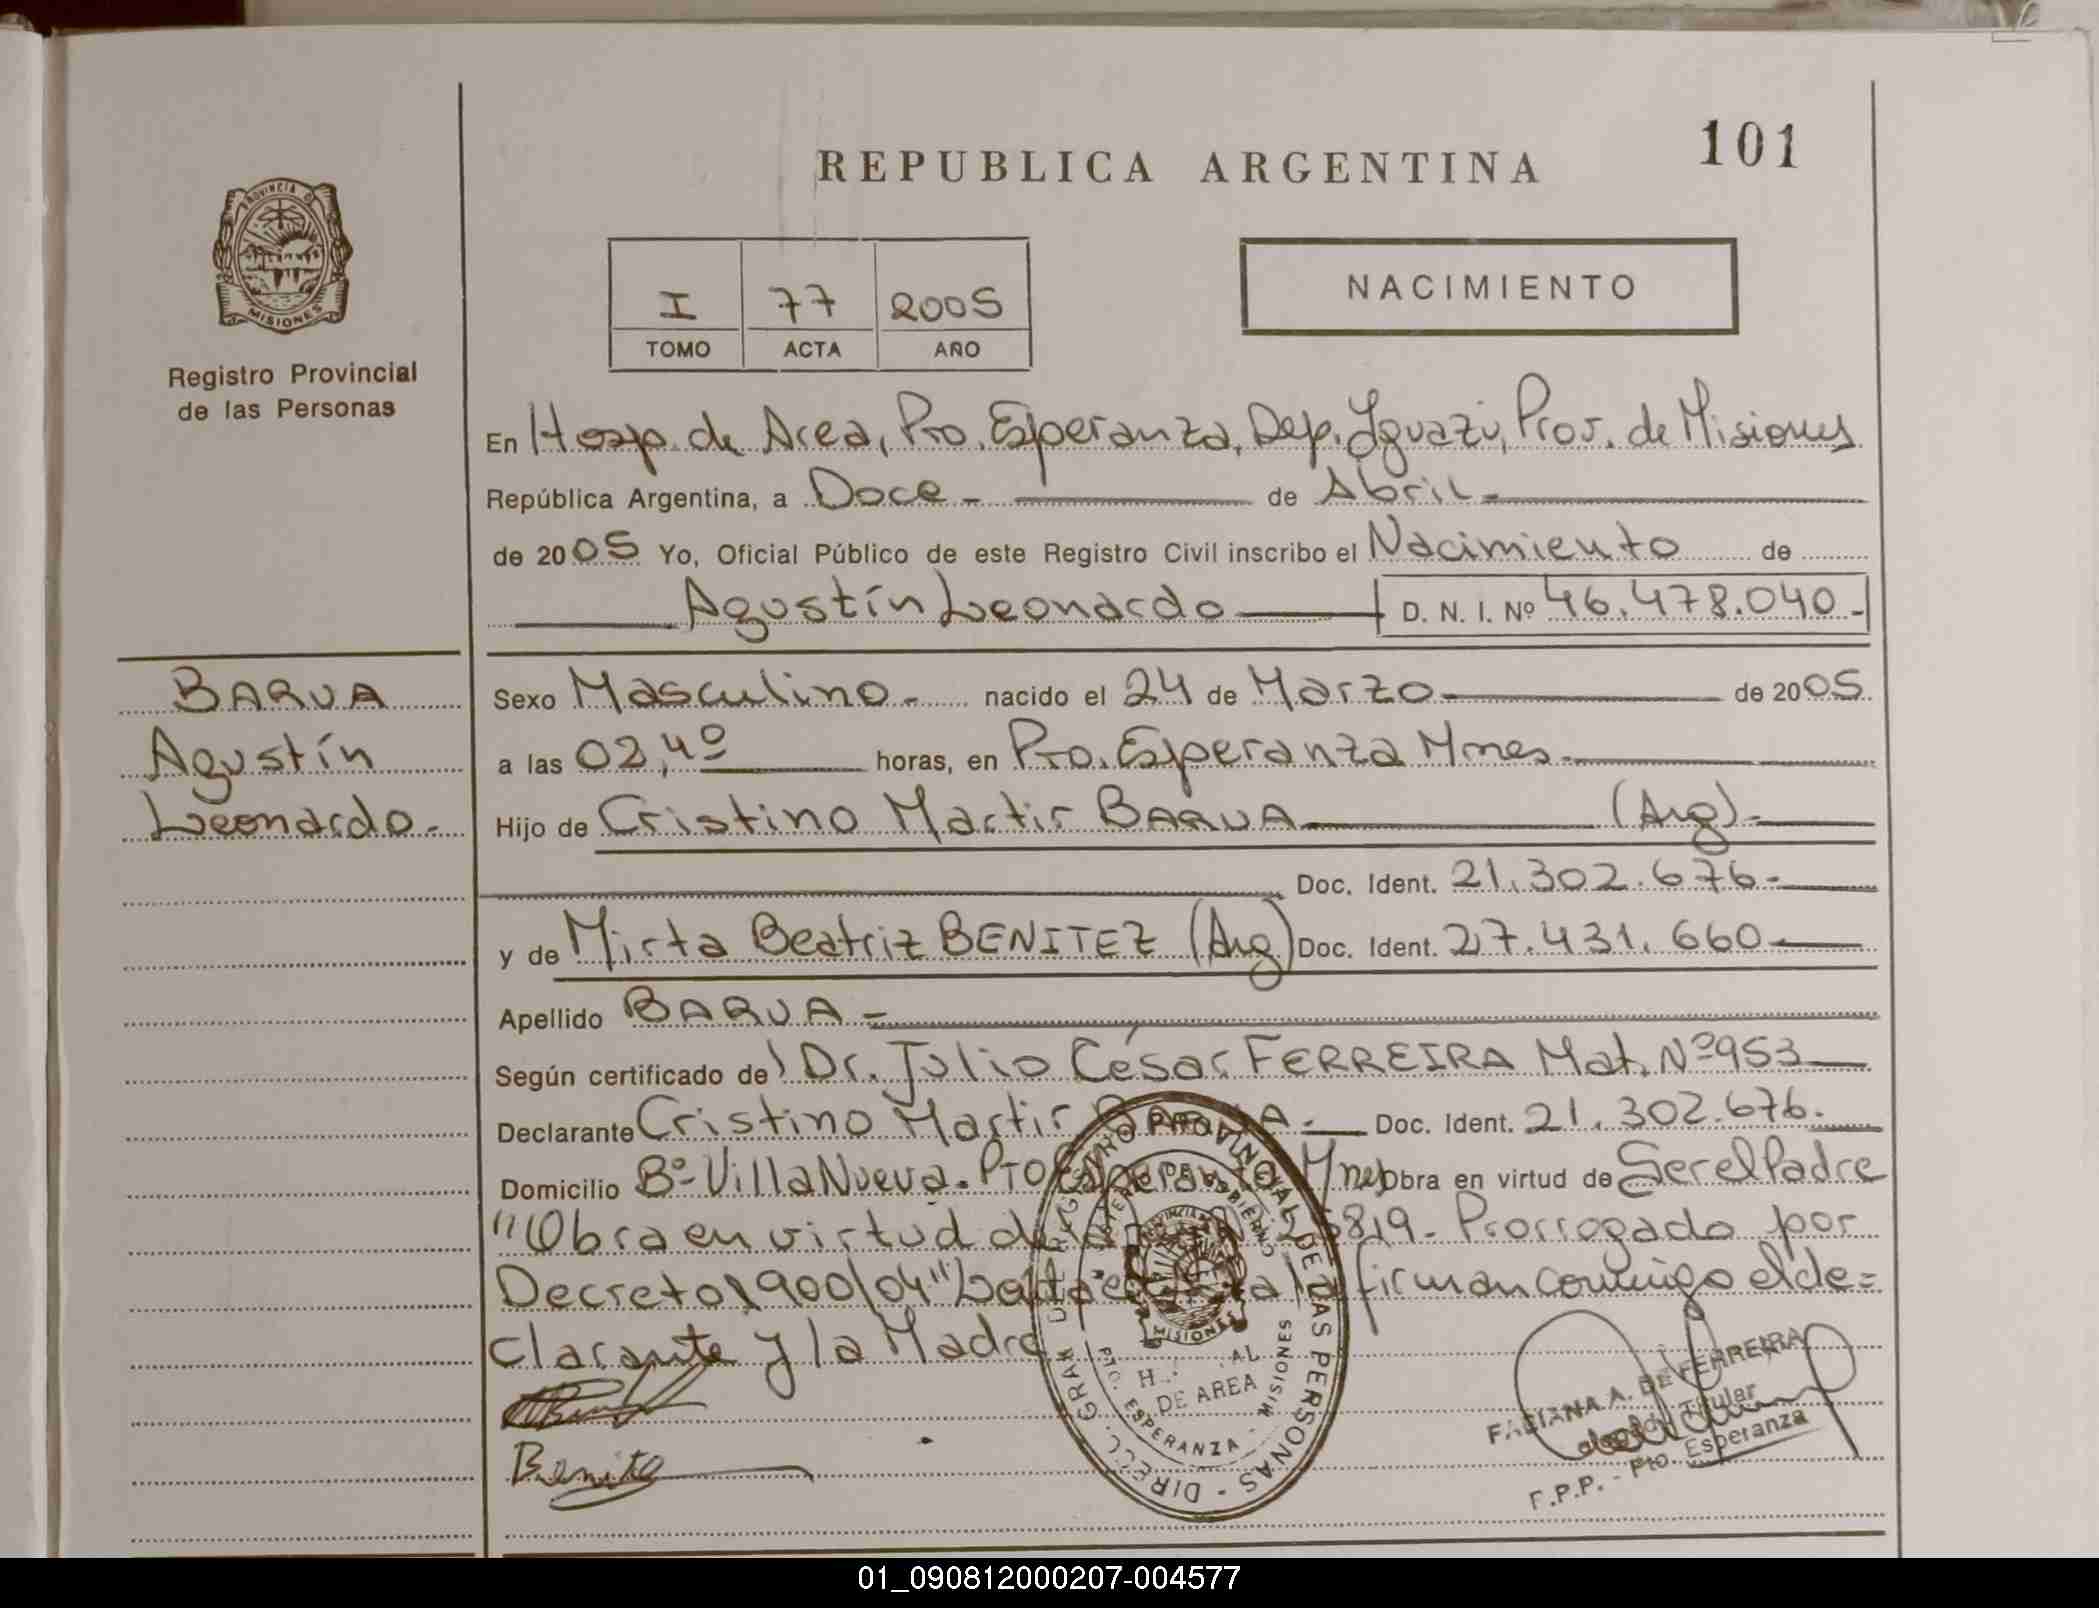 REPUBLICA ARGENTINA
101
PROVINCIA DE
MISIONES
Registro Provincial
de las Personas
I 77 2005
TOMO ACTA AÑO
NACIMIENTO
En Hosp. de Area, Pto. Esperanza, Dep. Iguazú, Prov. de Misiones
República Argentina, a Doce - de Abril -
de 2005 Yo, Oficial Público de este Registro Civil inscribo el Nacimiento de
Agustín Leonardo D. N. I. Nº 46.478.040-
BARUA
Agustín
Leonardo.-
Sexo Masculino.- nacido el 24 de Marzo de 2005
a las 02,40 horas, en Pto. Esperanza Mnes.
Hijo de Cristino Martir BARUA (Arg).-
Doc. Ident. 21.302.676-
y de Mirta Beatriz BENITEZ (Arg) Doc. Ident. 27.431.660
Apellido BARUA -
Según certificado de Dr. Julio César FERREIRA Mat. Nº 953
Declarante Cristino Martir BARUA.- Doc. Ident. 21.302.676.
Domicilio Bº Villa Nueva. Pto Esperanza Mnes Obra en virtud de Ser el Padre
"Obra en virtud de 25819- Prorrogado por
Decreto 1900/04" firman conmigo el de=
clarante y la Madre
Benite
REGISTRO PROVINCIAL DE LAS PERSONAS - DIRECC. GRAL DEL
MISIONES
H. AL
DE AREA
PTO. ESPERANZA - MISIONES
FABIANA A. DE FERREIRA
Titular
F.P.P. - Pto. Esperanza
01_090812000207-004577